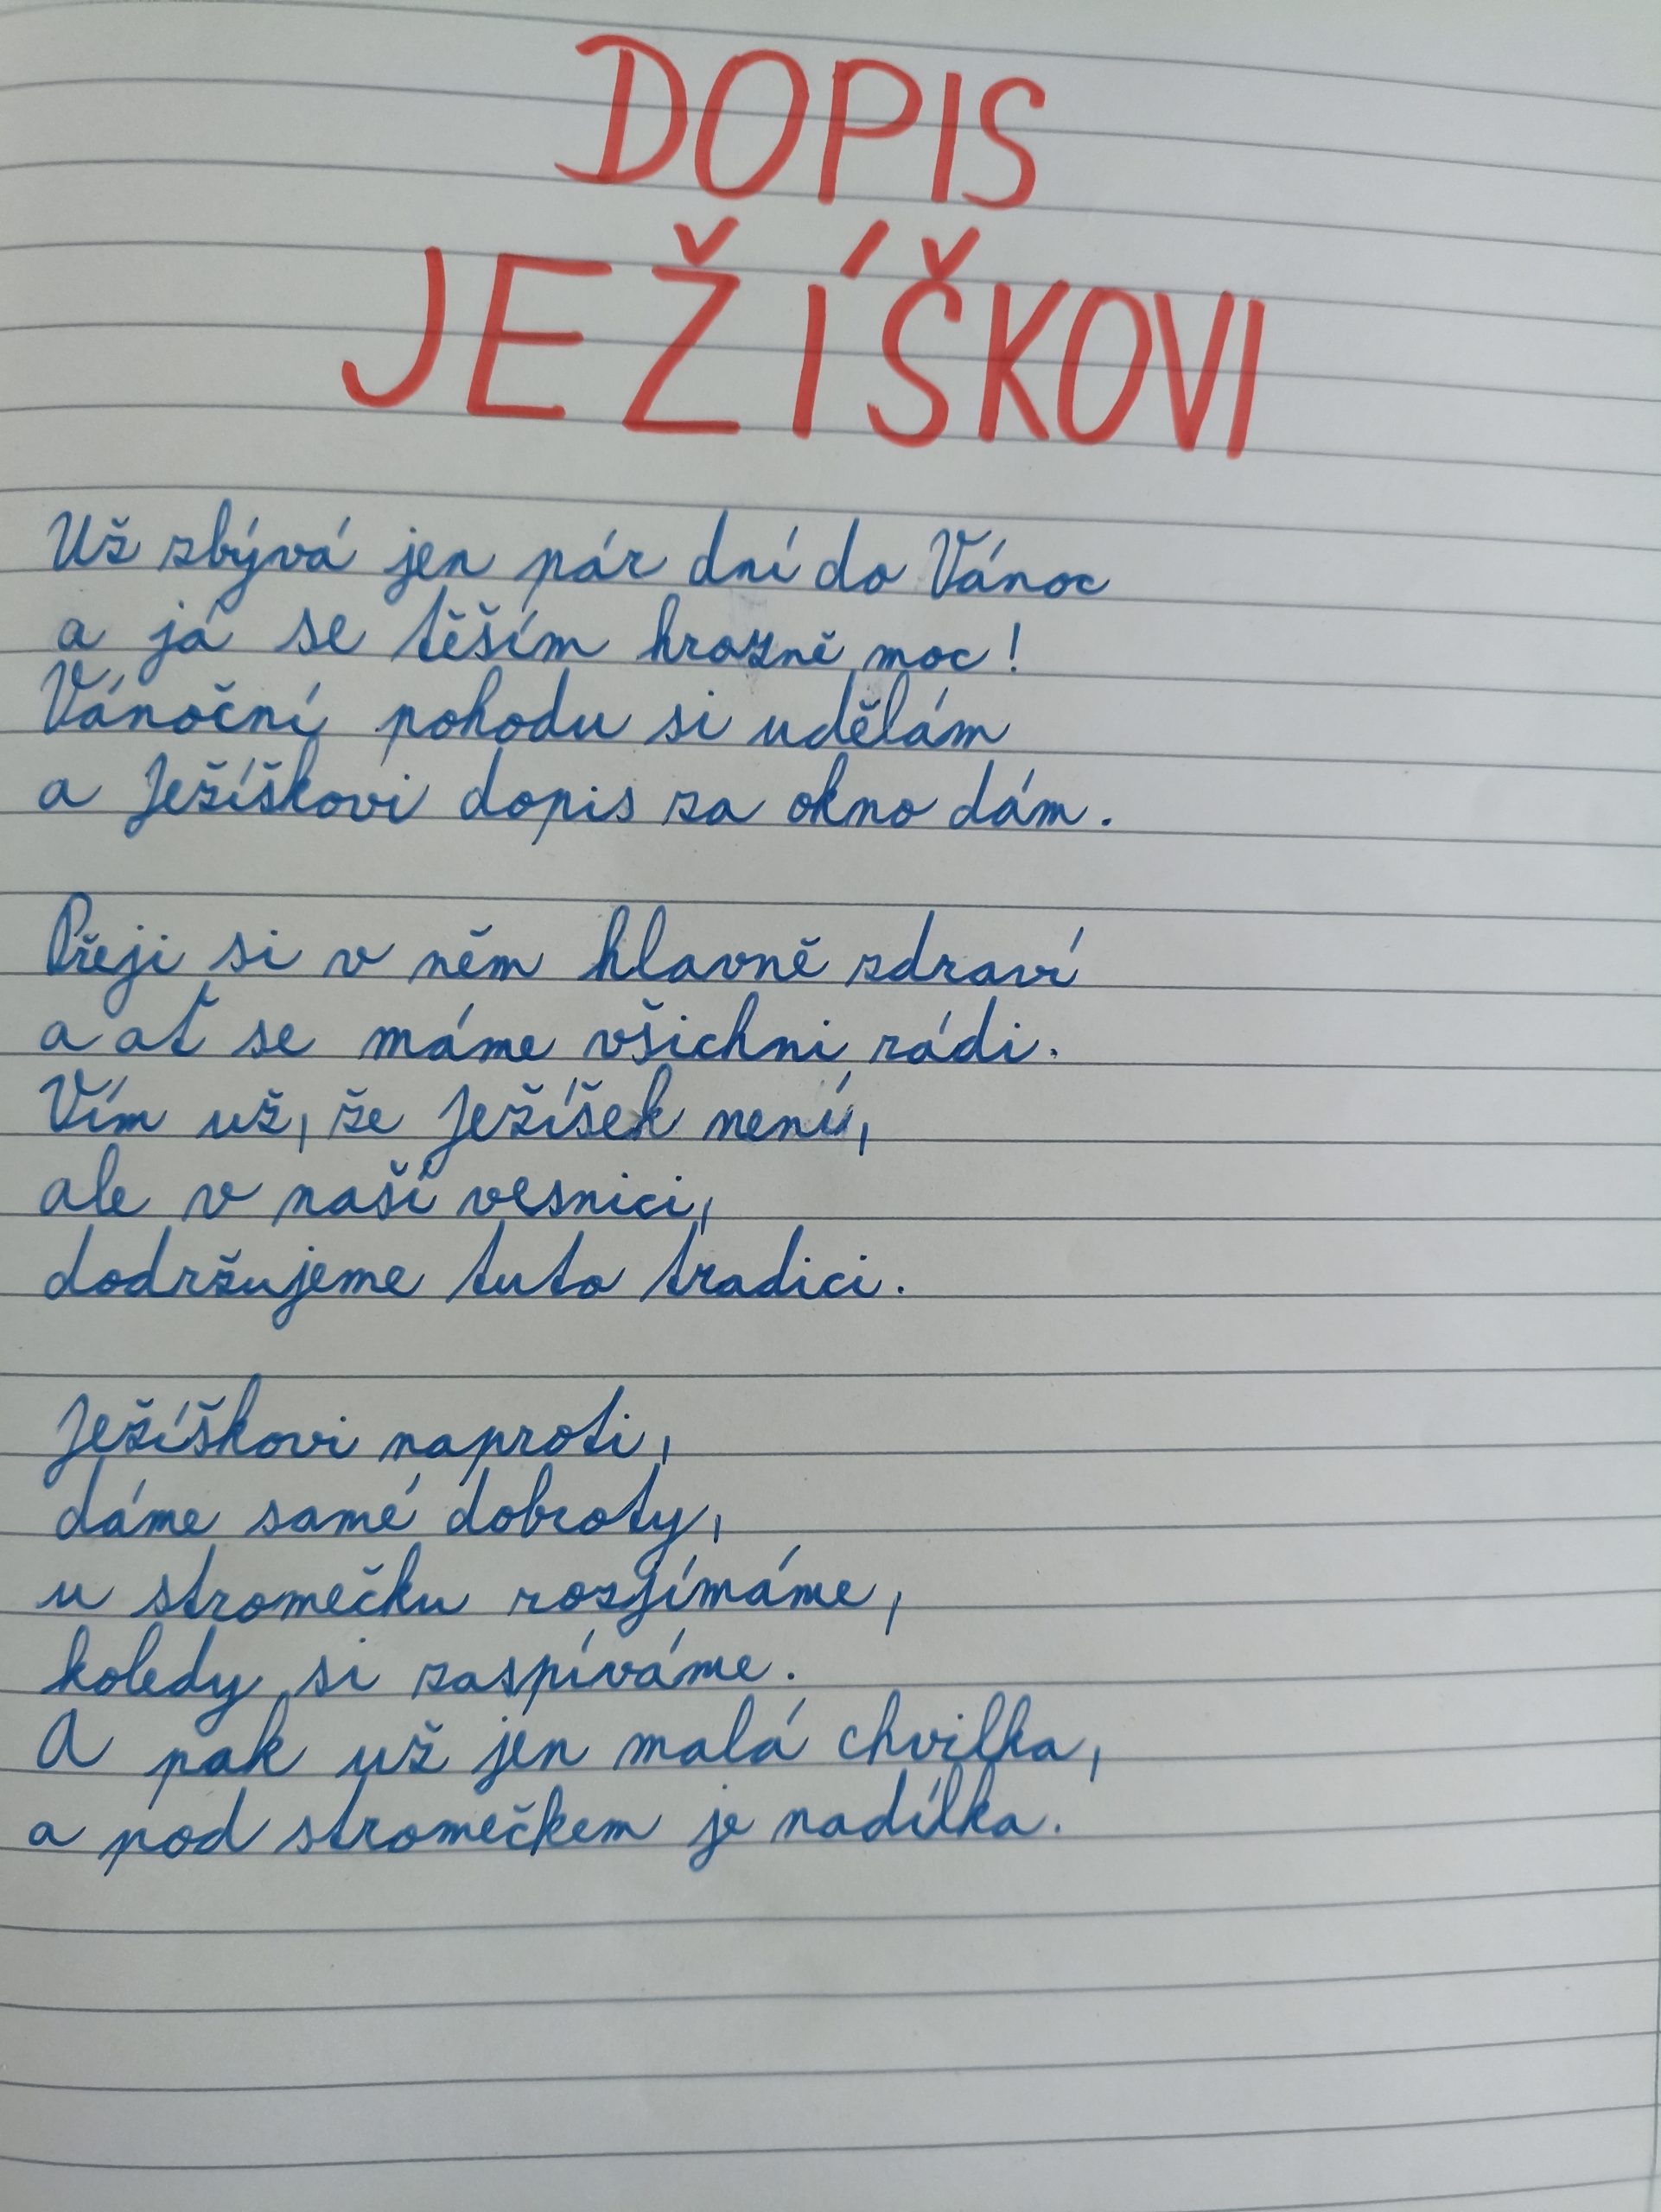 DOPIS
JEŽÍŠKOVI
Už zbývá jen pár dní do Vánoc
a já se těším hrozně moc!
Vánoční pohodu si udělám
a Ježíškovi dopis za okno dám.
Přeji si v něm hlavně zdraví
a ať se máme všichni rádi.
Vím už, že Ježíšek není,
ale v naší vesnici,
dodržujeme tuto tradici.
Ježíškovi naproti,
dáme samé dobroty,
u stromečku rozjímáme,
koledy si zaspíváme.
A pak už jen malá chvilka,
a pod stromečkem je nadílka.